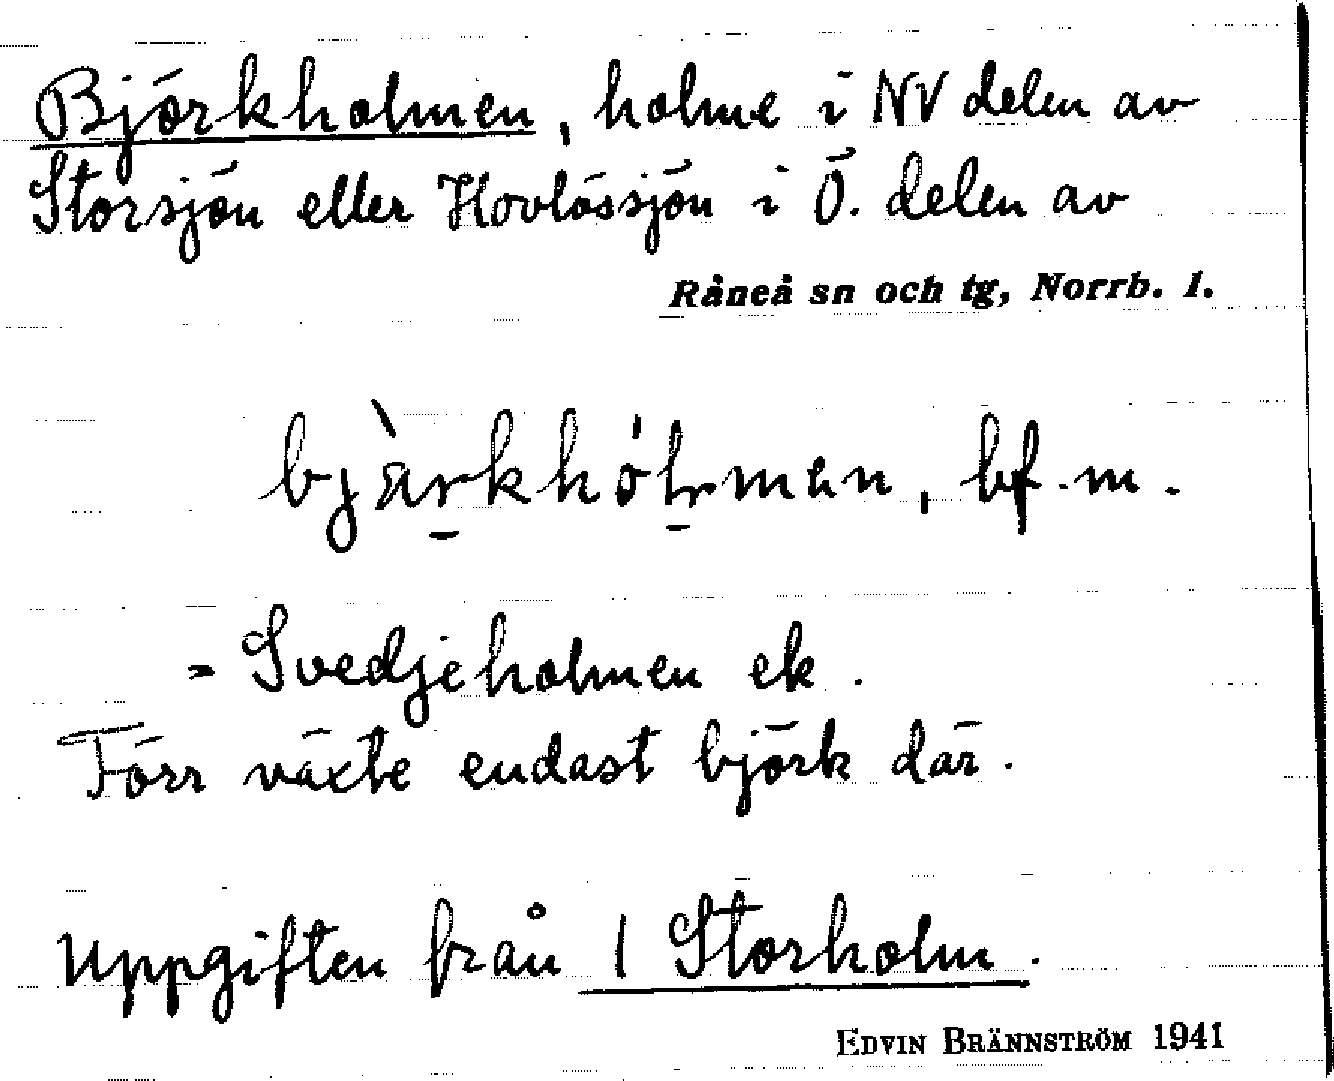 Björkholmen, holme i NV delen av
Storsjön eller Hovlössjön i Ö. delen av
Råneå sn och tg, Norrb. l.
bf. m.
= Svedjeholmen ek.
Förr växte endast björk där.
Uppgiften från 1 Storholm.
EDVIN BRÄNNSTRÖM 1941